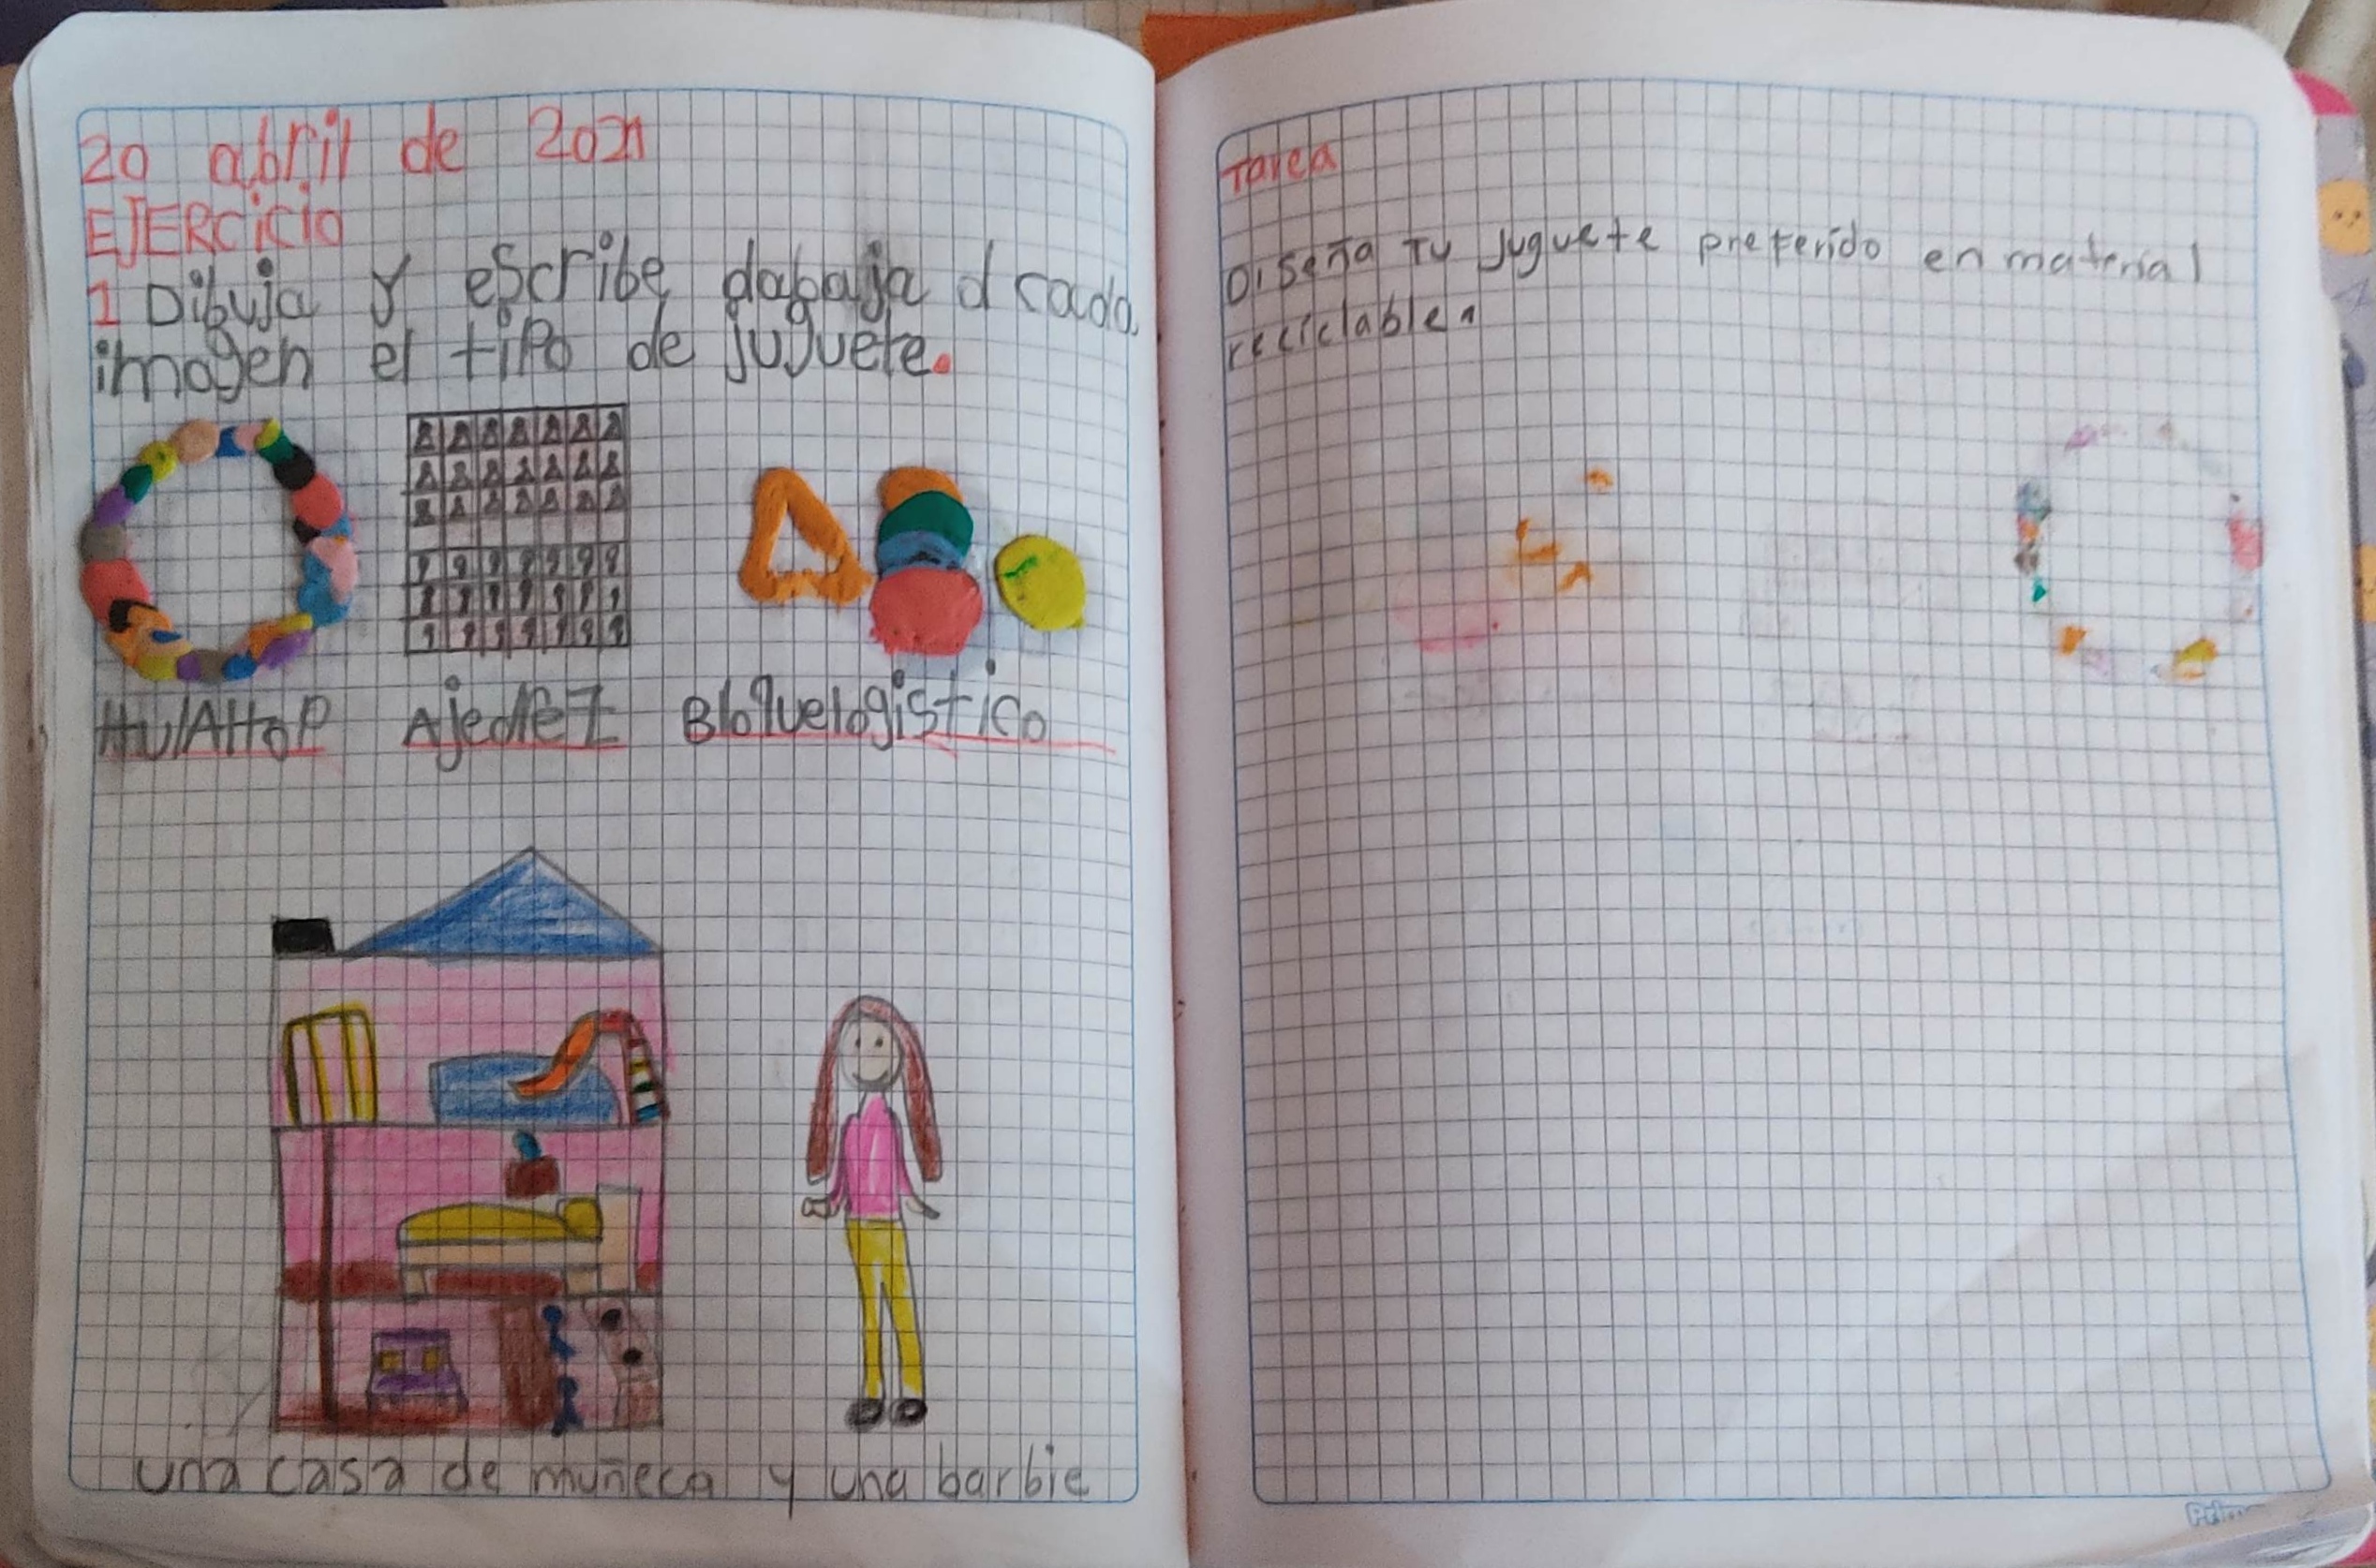 20 abril de 2021
EJERcicio
1 Dibuja y escribe dabaja d cada
imagen el tipo de juguete.
HulAHoP Ajedrez Bloquelogistico
una casa de muñeca y una barbie
Tarea
Diseña Tu juguete preferido en material
reciclable.